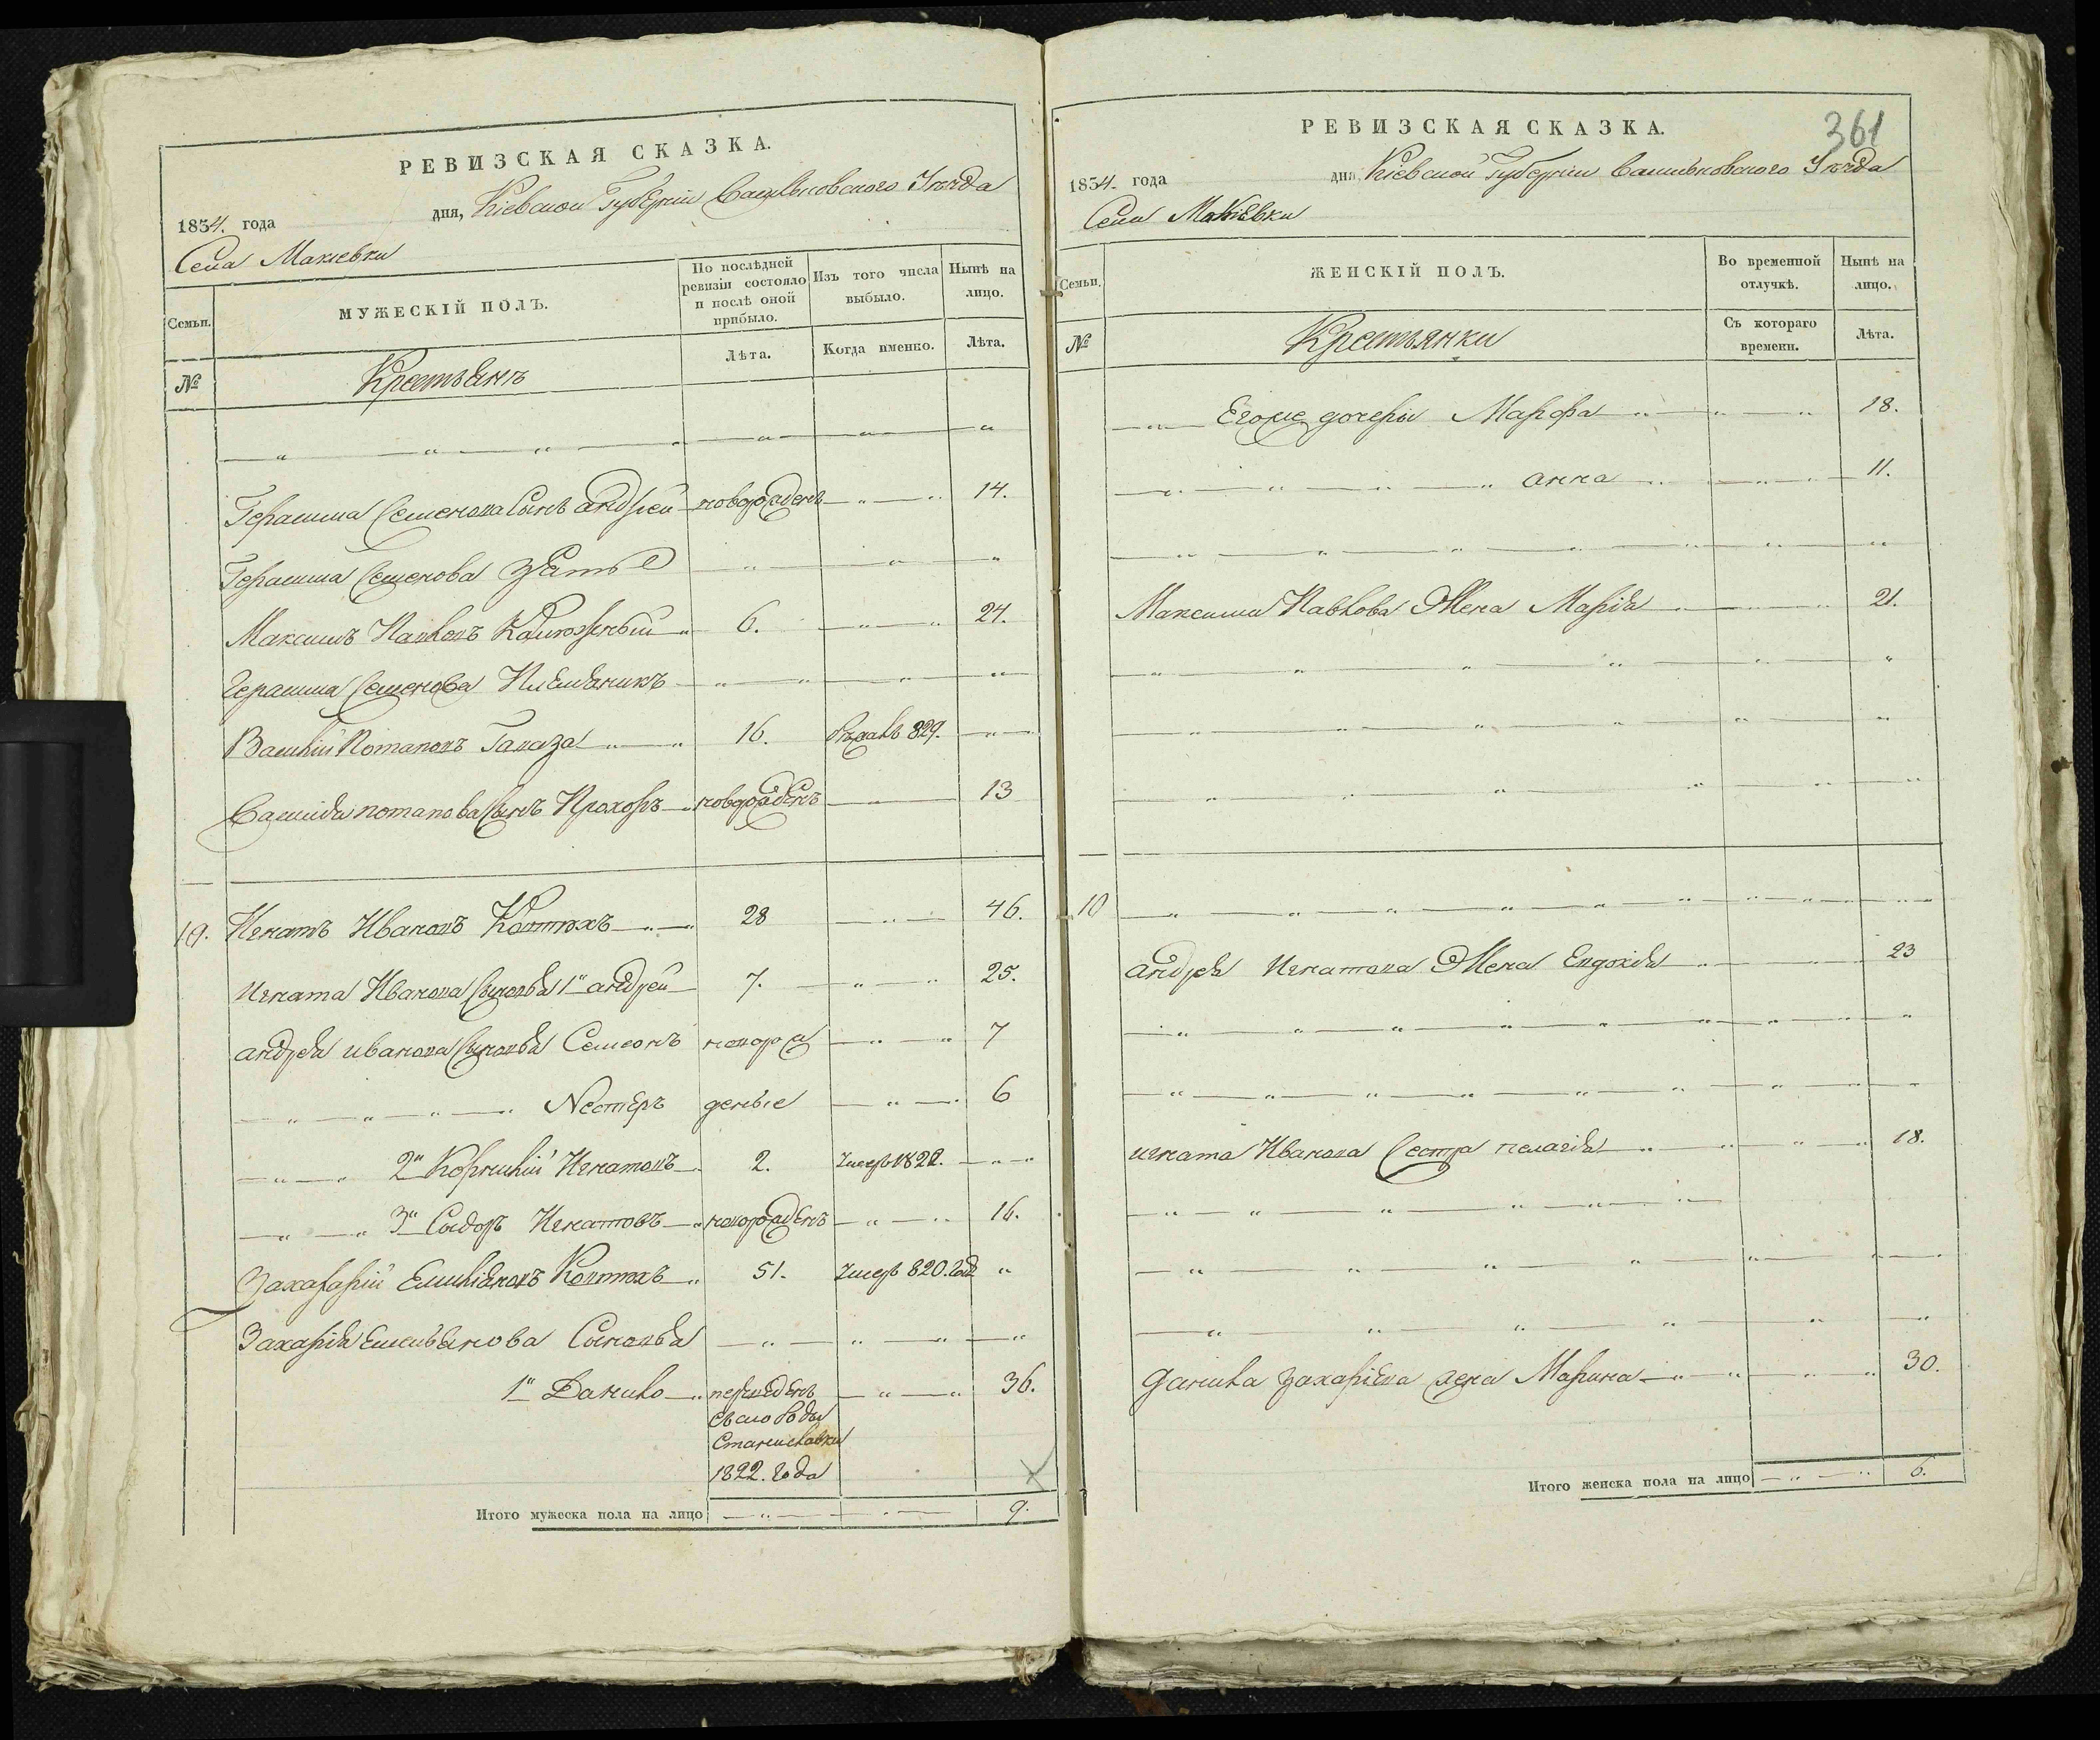 РЕВИЗСКАЯ СКАЗКА.
1834. года дня, Кіевской Губерніи Васильковского Уезда
Села Макіевки
Семьи.
МУЖЕСКІЙ ПОЛЪ.
По послѣдней ревизіи состояло и послѣ оной прибыло.
Изъ того числа выбыло.
Нынѣ на лицо.
№
Крестьянъ
Лѣта.
Когда именно.
Лѣта.
Герасима Семенова Сынъ андрей новорожденъ 14.
Герасима Семенова зять
Максимъ Павловъ 6. 24.
Герасима Семенова Племяникъ
Василій Потаповъ 16. бежалъ 829.
Василія потапова Сынъ Прохоръ новорожденъ 13
10. Игнатъ Ивановъ Ковтюхъ 28 46.
Игната Иванова Сыновья 1й андрей 7. 25.
андрея иванова Сыновья Семионъ новорож 7
Nестеръ деные 6
2й Корнилій Игнатовъ 2. Умеръ 1822.
3й Сидоръ Игнатовъ новорожденъ 16.
Захарій Емиліяновъ Ковтюхъ 51. Умеръ 820. года
Захарія Емельянова Сыновья
1й Данило переведенъ 36.
съ слободы
Станиславки
1822. года
Итого мужеска пола на лицо 9.
361
РЕВИЗСКАЯ СКАЗКА.
1834. года дня Кіевской Губерніи Васильковского Уезда
Села Макіевки
Семьи.
ЖЕНСКІЙ ПОЛЪ.
Во временной отлучкѣ.
Нынѣ на лицо.
№
Крестьянки
Съ котораго времени.
Лѣта.
Егоже дочери Марфа 18.
анна 11.
Максима Павлова Жена Марія 21.
10
андрея Игнатова Жена Евдокія 23
игната Иванова Сестра пелагія 18.
Данила Захаріева жена Марина 30.
Итого женска пола на лицо 6.